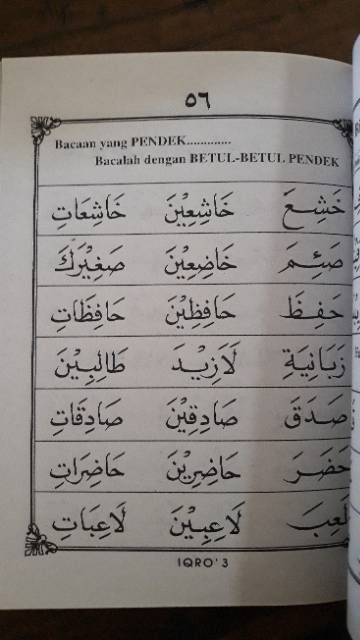 ٥٦
Bacaan yang PENDEK.............
Bacalah dengan BETUL-BETUL PENDEK
خَشِعَ خَاشِعِيْنَ خَاشِعَاتِ
صَئِمَ خَاضِعِيْنَ صَغِيْرَكَ
حَفِظَ حَافِظِيْنَ حَافِظَاتِ
زَبَانِيَةِ لَازِيْدَ طَالِبِيْنَ
صَدَقَ صَادِقِيْنَ صَادِقَاتِ
حَضَرَ حَاضِرِيْنَ حَاضِرَاتِ
لَعِبَ لَاعِبِيْنَ لَاعِبَاتِ
IQRO' 3